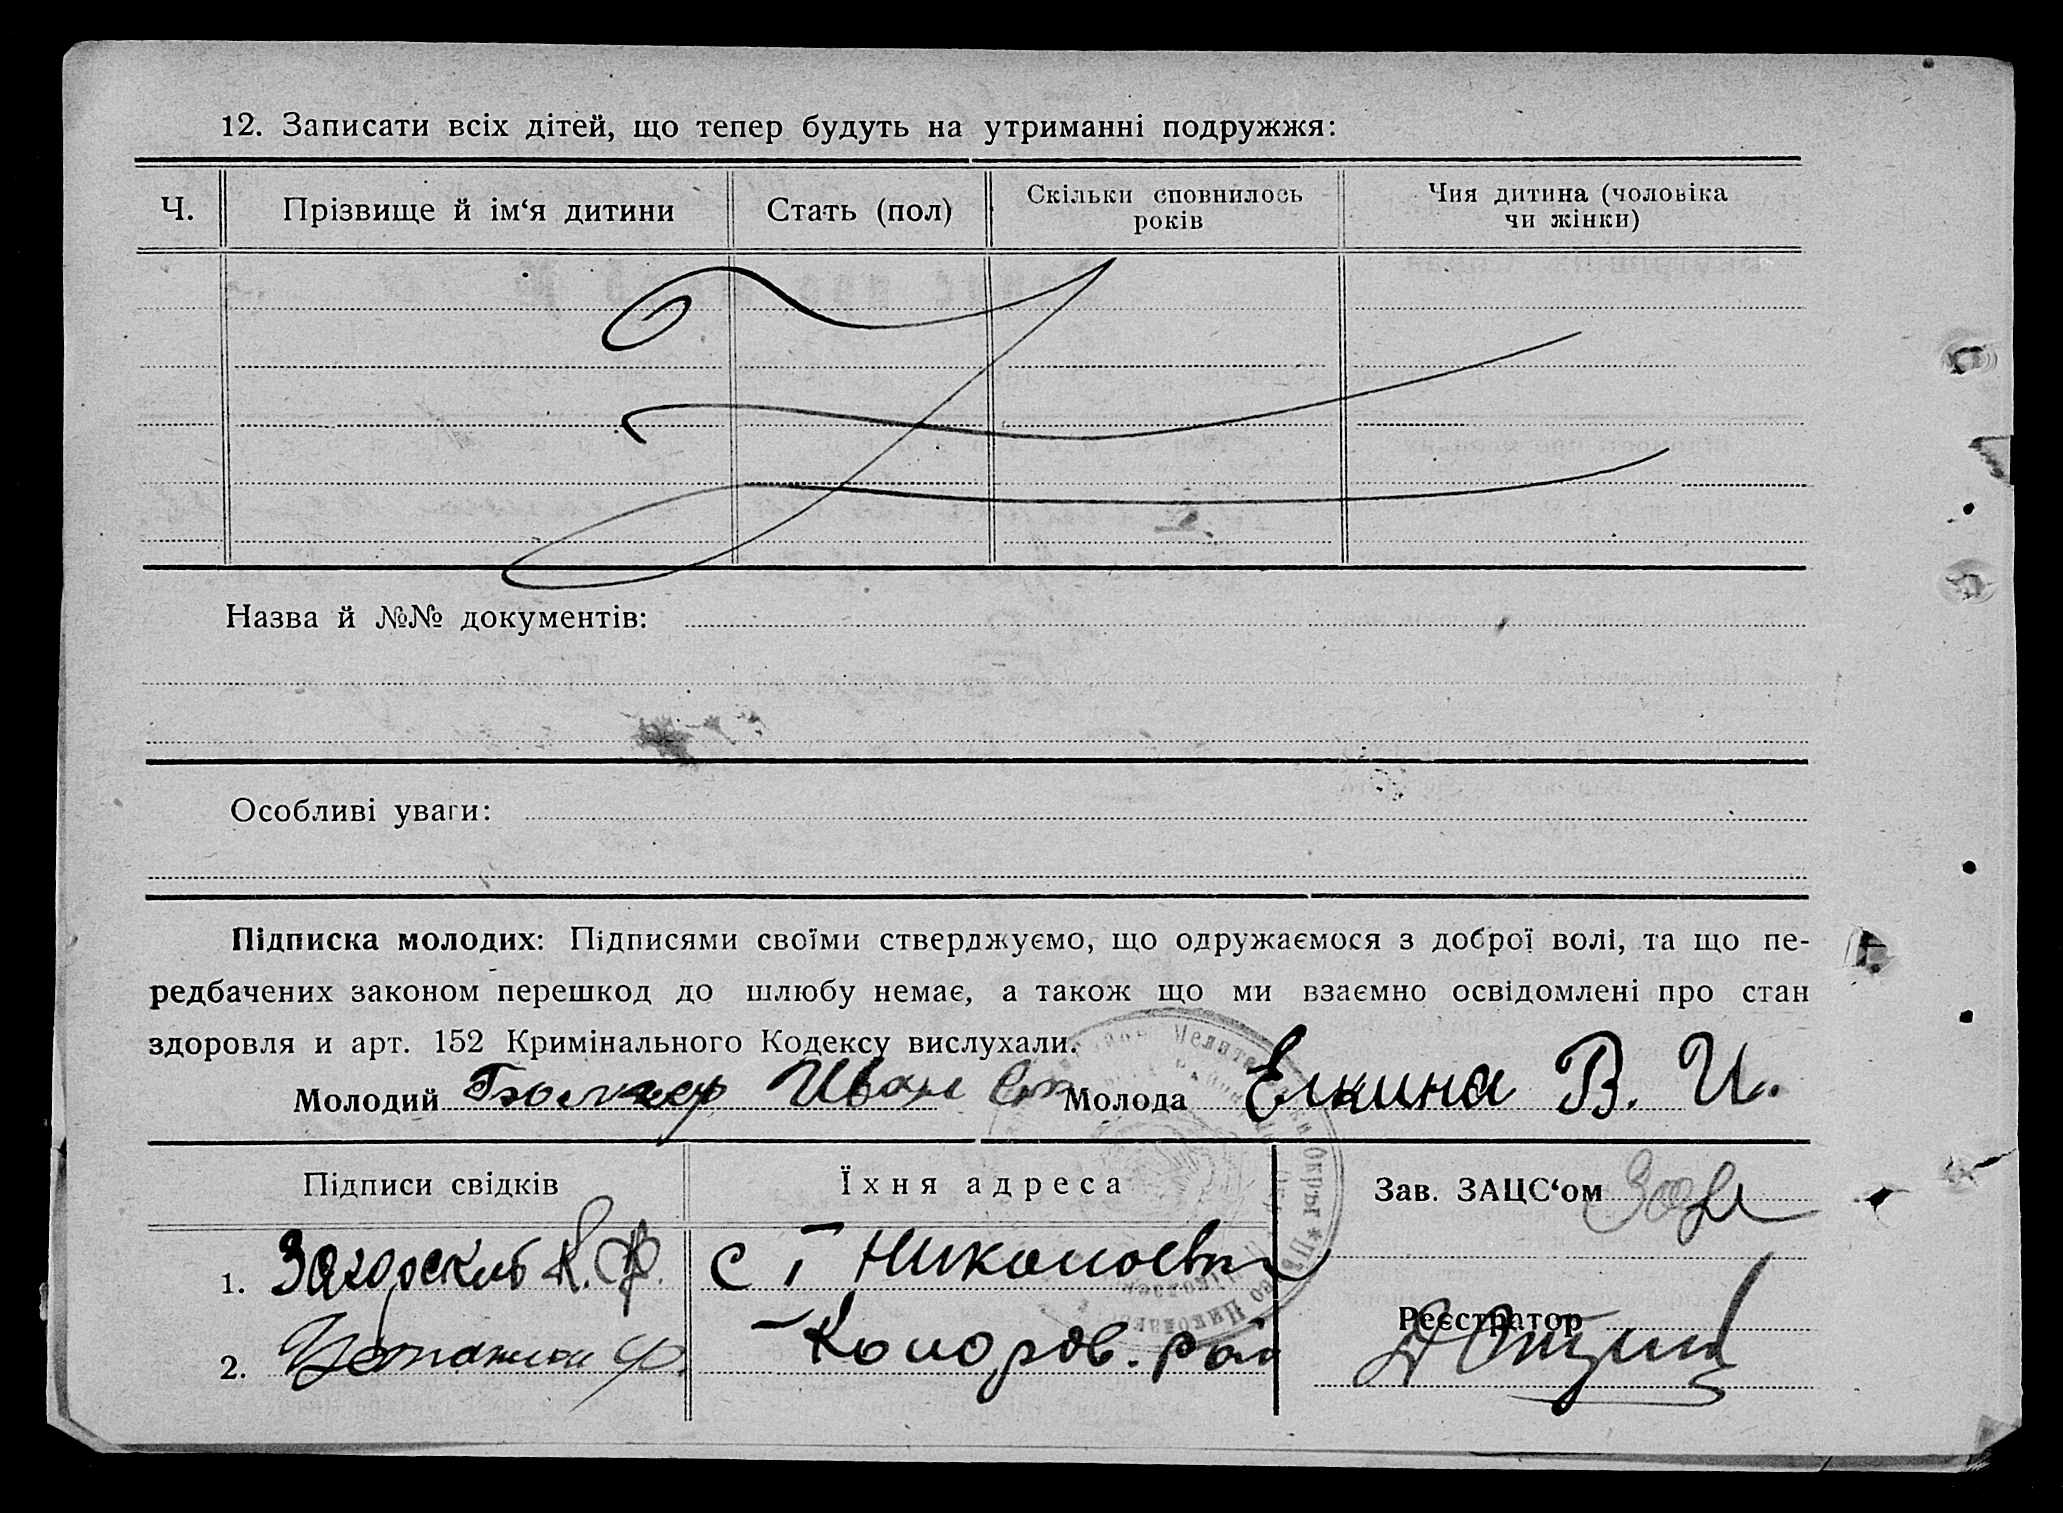 12. Записати всіх дітей, що тепер будуть на утриманні подружжя:
Ч. Прізвище й ім‘я дитини Стать (пол) Скільки сповнилось років Чия дитина (чоловіка чи жінки)
Назва й №№ документів:
Особливі уваги:
Підписка молодих: Підписями своїми стверджуємо, що одружаємося з доброї волі, та що пе-
редбачених законом перешкод до шлюбу немає, а також що ми взаємно освідомлені про стан
здоровля и арт. 152 Кримінального Кодексу вислухали.
Молодий Иван Молода Елкина В. И.
Підписи свідків Їхня адреса Зав. ЗАЦС‘ом
1. Загорский К. Ф. с
Реєстратор
2.